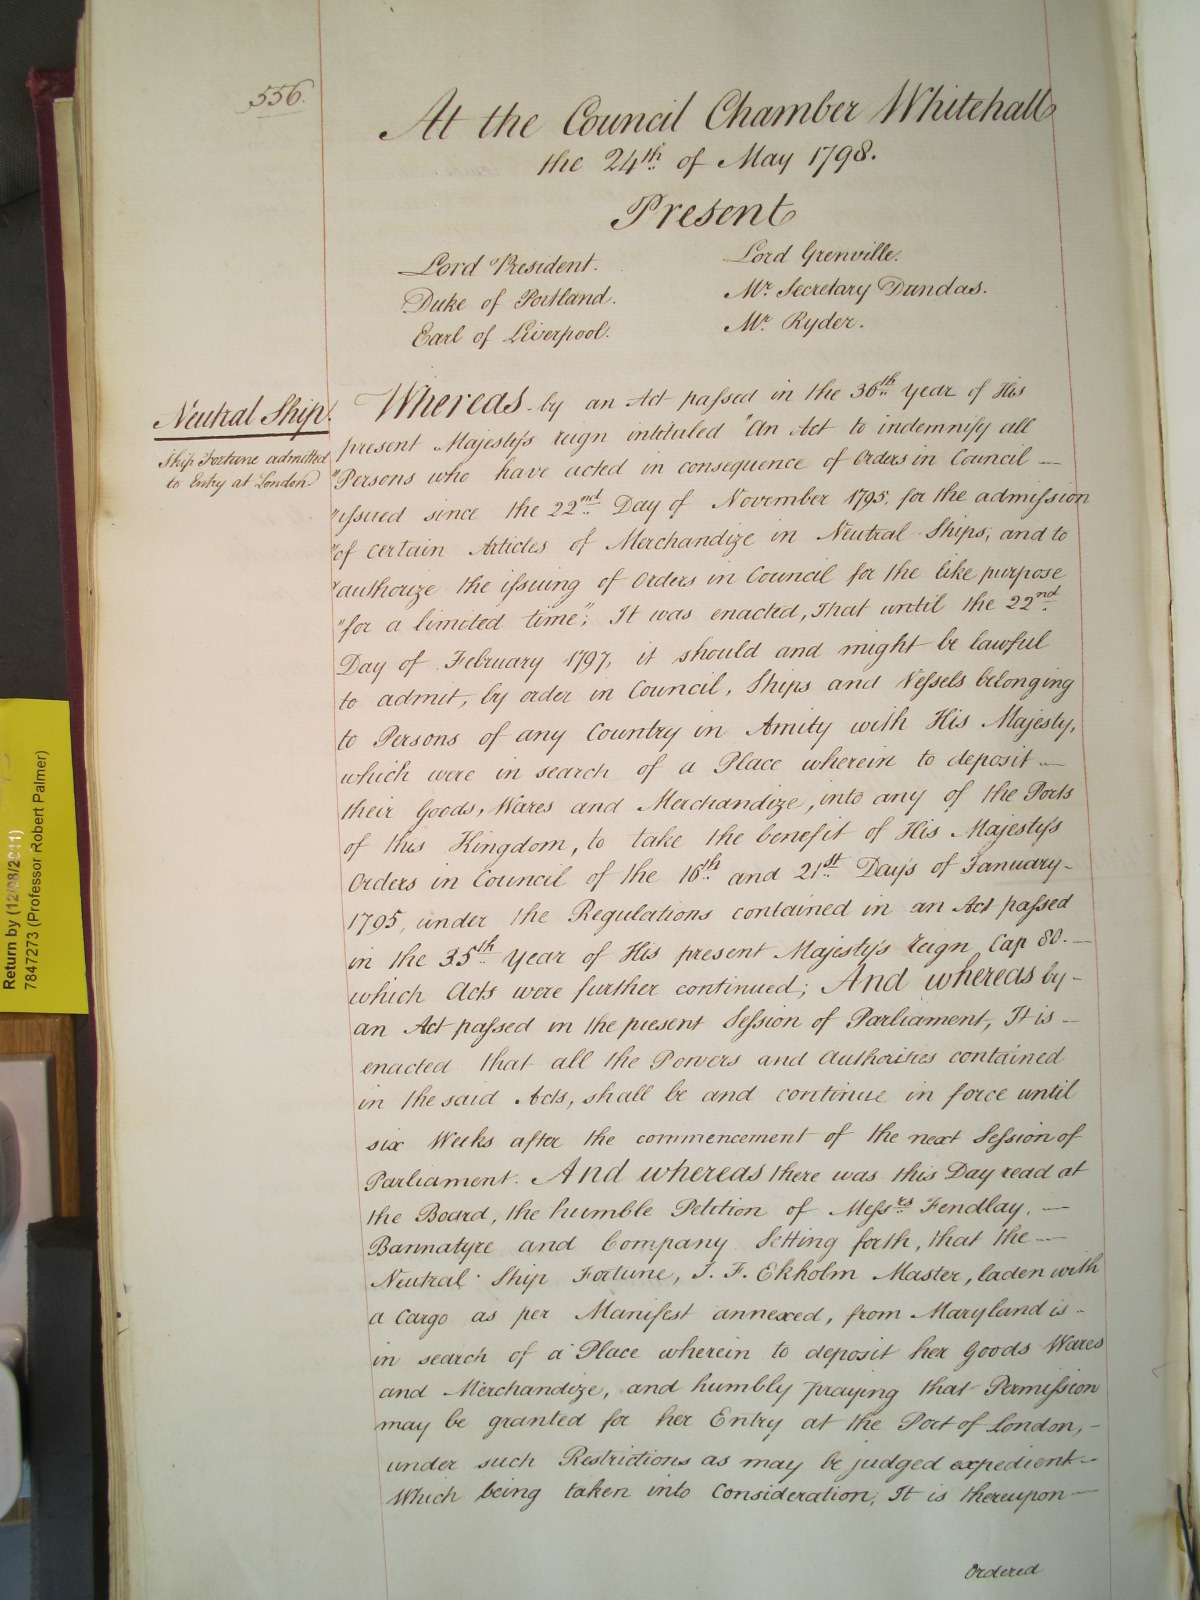 556.
At the Council Chamber Whitehall
the 24th of May 1798.
Present
Lord President.
Duke of Portland.
Earl of Liverpool.
Lord Grenville.
Mr. Secretary Dundas.
Mr. Ryder.
Neutral Ship.
Ship Fortune admitted
to Entry at London
Whereas by an Act passed in the 36th Year of His
present Majesty's reign intituled "An Act to indemnify all
"Persons who have acted in consequence of Orders in Council —
"issued since the 22nd Day of November 1795, for the admission
"of certain Articles of Merchandize in Neutral Ships, and to
"authorize the issuing of Orders in Council for the like purpose
"for a limited time"; It was enacted, That until the 22nd
Day of February 1797, it should and might be lawful
to admit, by order in Council, Ships and Vessels belonging
to Persons of any Country in Amity with His Majesty,
which were in search of a Place wherein to deposit —
their Goods, Wares and Merchandize, into any of the Ports
of this Kingdom, to take the benefit of His Majesty's
Orders in Council of the 16th and 21st Days of January -
1795, under the Regulations contained in an Act passed
in the 35th Year of His present Majesty's reign, Cap 80. —
which Acts were further continued; And whereas by -
an Act passed in the present Session of Parliament, It is -
enacted that all the Powers and Authorities contained
in the said Acts, shall be and continue in force until
six Weeks after the commencement of the next Session of
Parliament. And whereas there was this Day read at
the Board, the humble Petition of Messrs Fendlay, —
Bannatyre and Company Setting forth, that the —
Neutral Ship Fortune, J. F. Ekholm Master, laden with
a Cargo as per Manifest annexed, from Maryland is -
in search of a Place wherein to deposit her Goods Wares
and Merchandize, and humbly praying that Permission
may be granted for her Entry at the Port of London, -
under such Restrictions as may be judged expedient -
Which being taken into Consideration, It is thereupon —
Ordered
Return by (12/08/2011)
7847273 (Professor Robert Palmer)